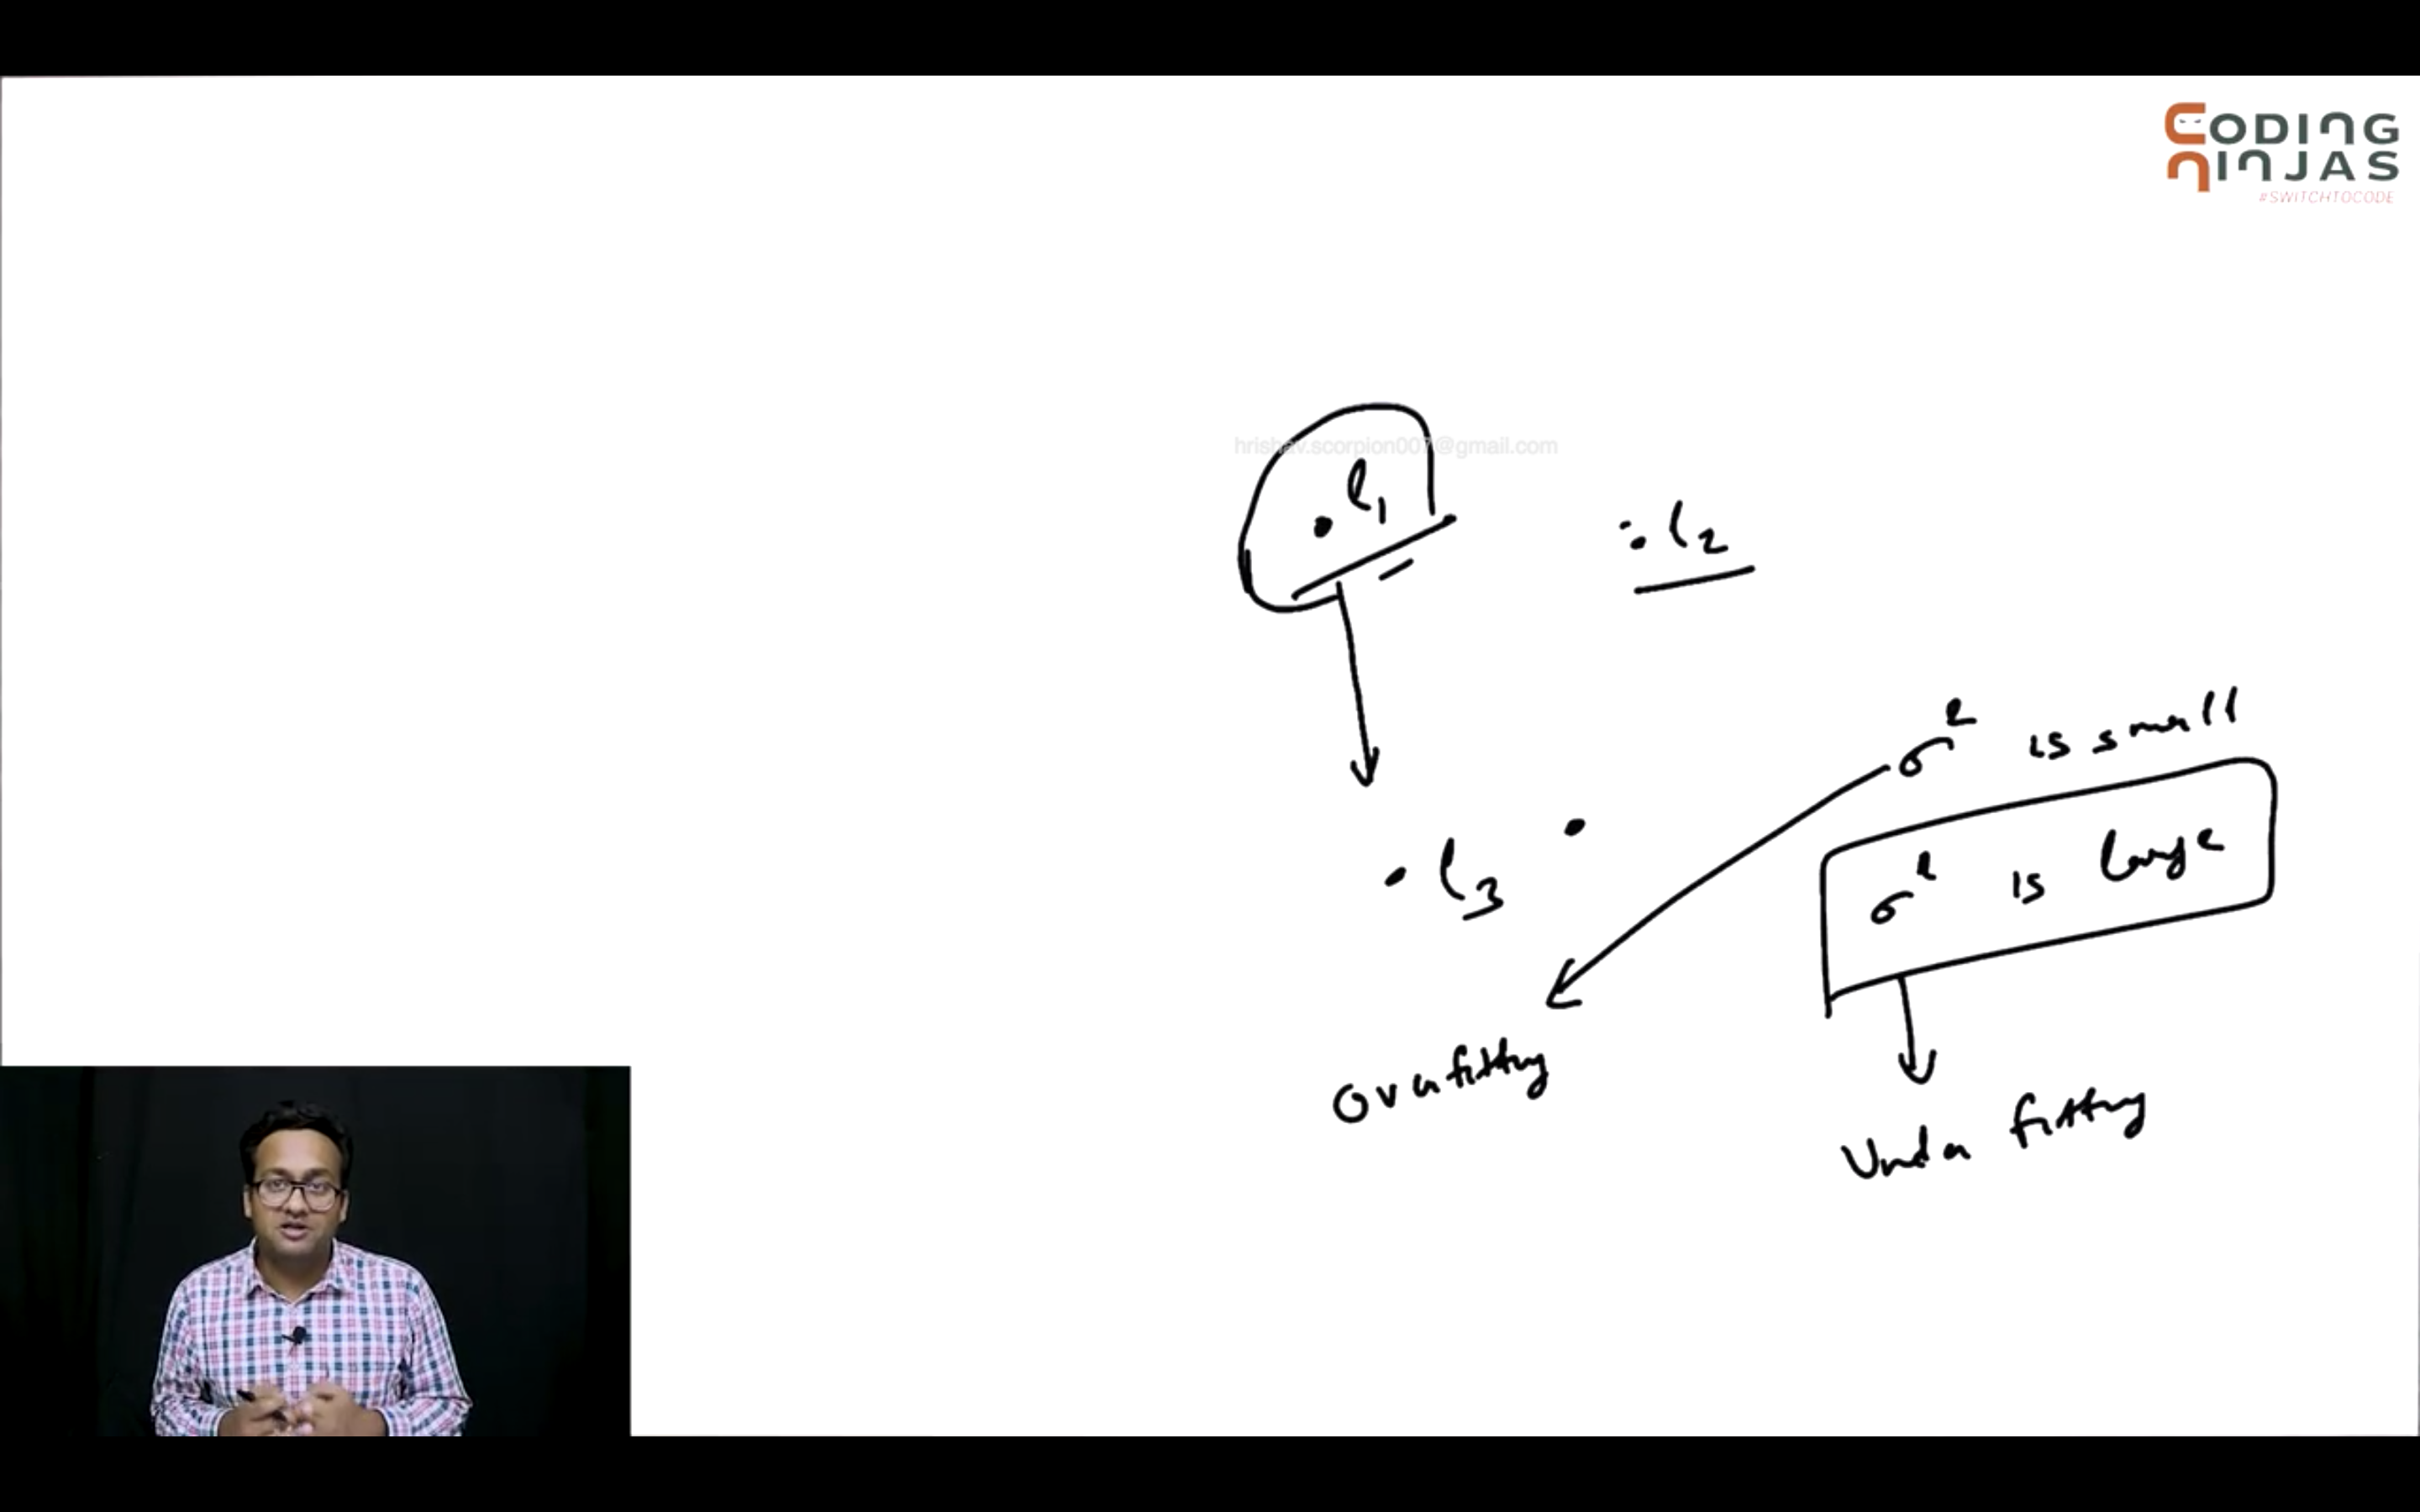 CODING
NINJAS
#SWITCHTOCODE
hrishav.scorpion007@gmail.com
l1
l2
σ² is small
l3
σ² is large
Overfitting
Under fitting